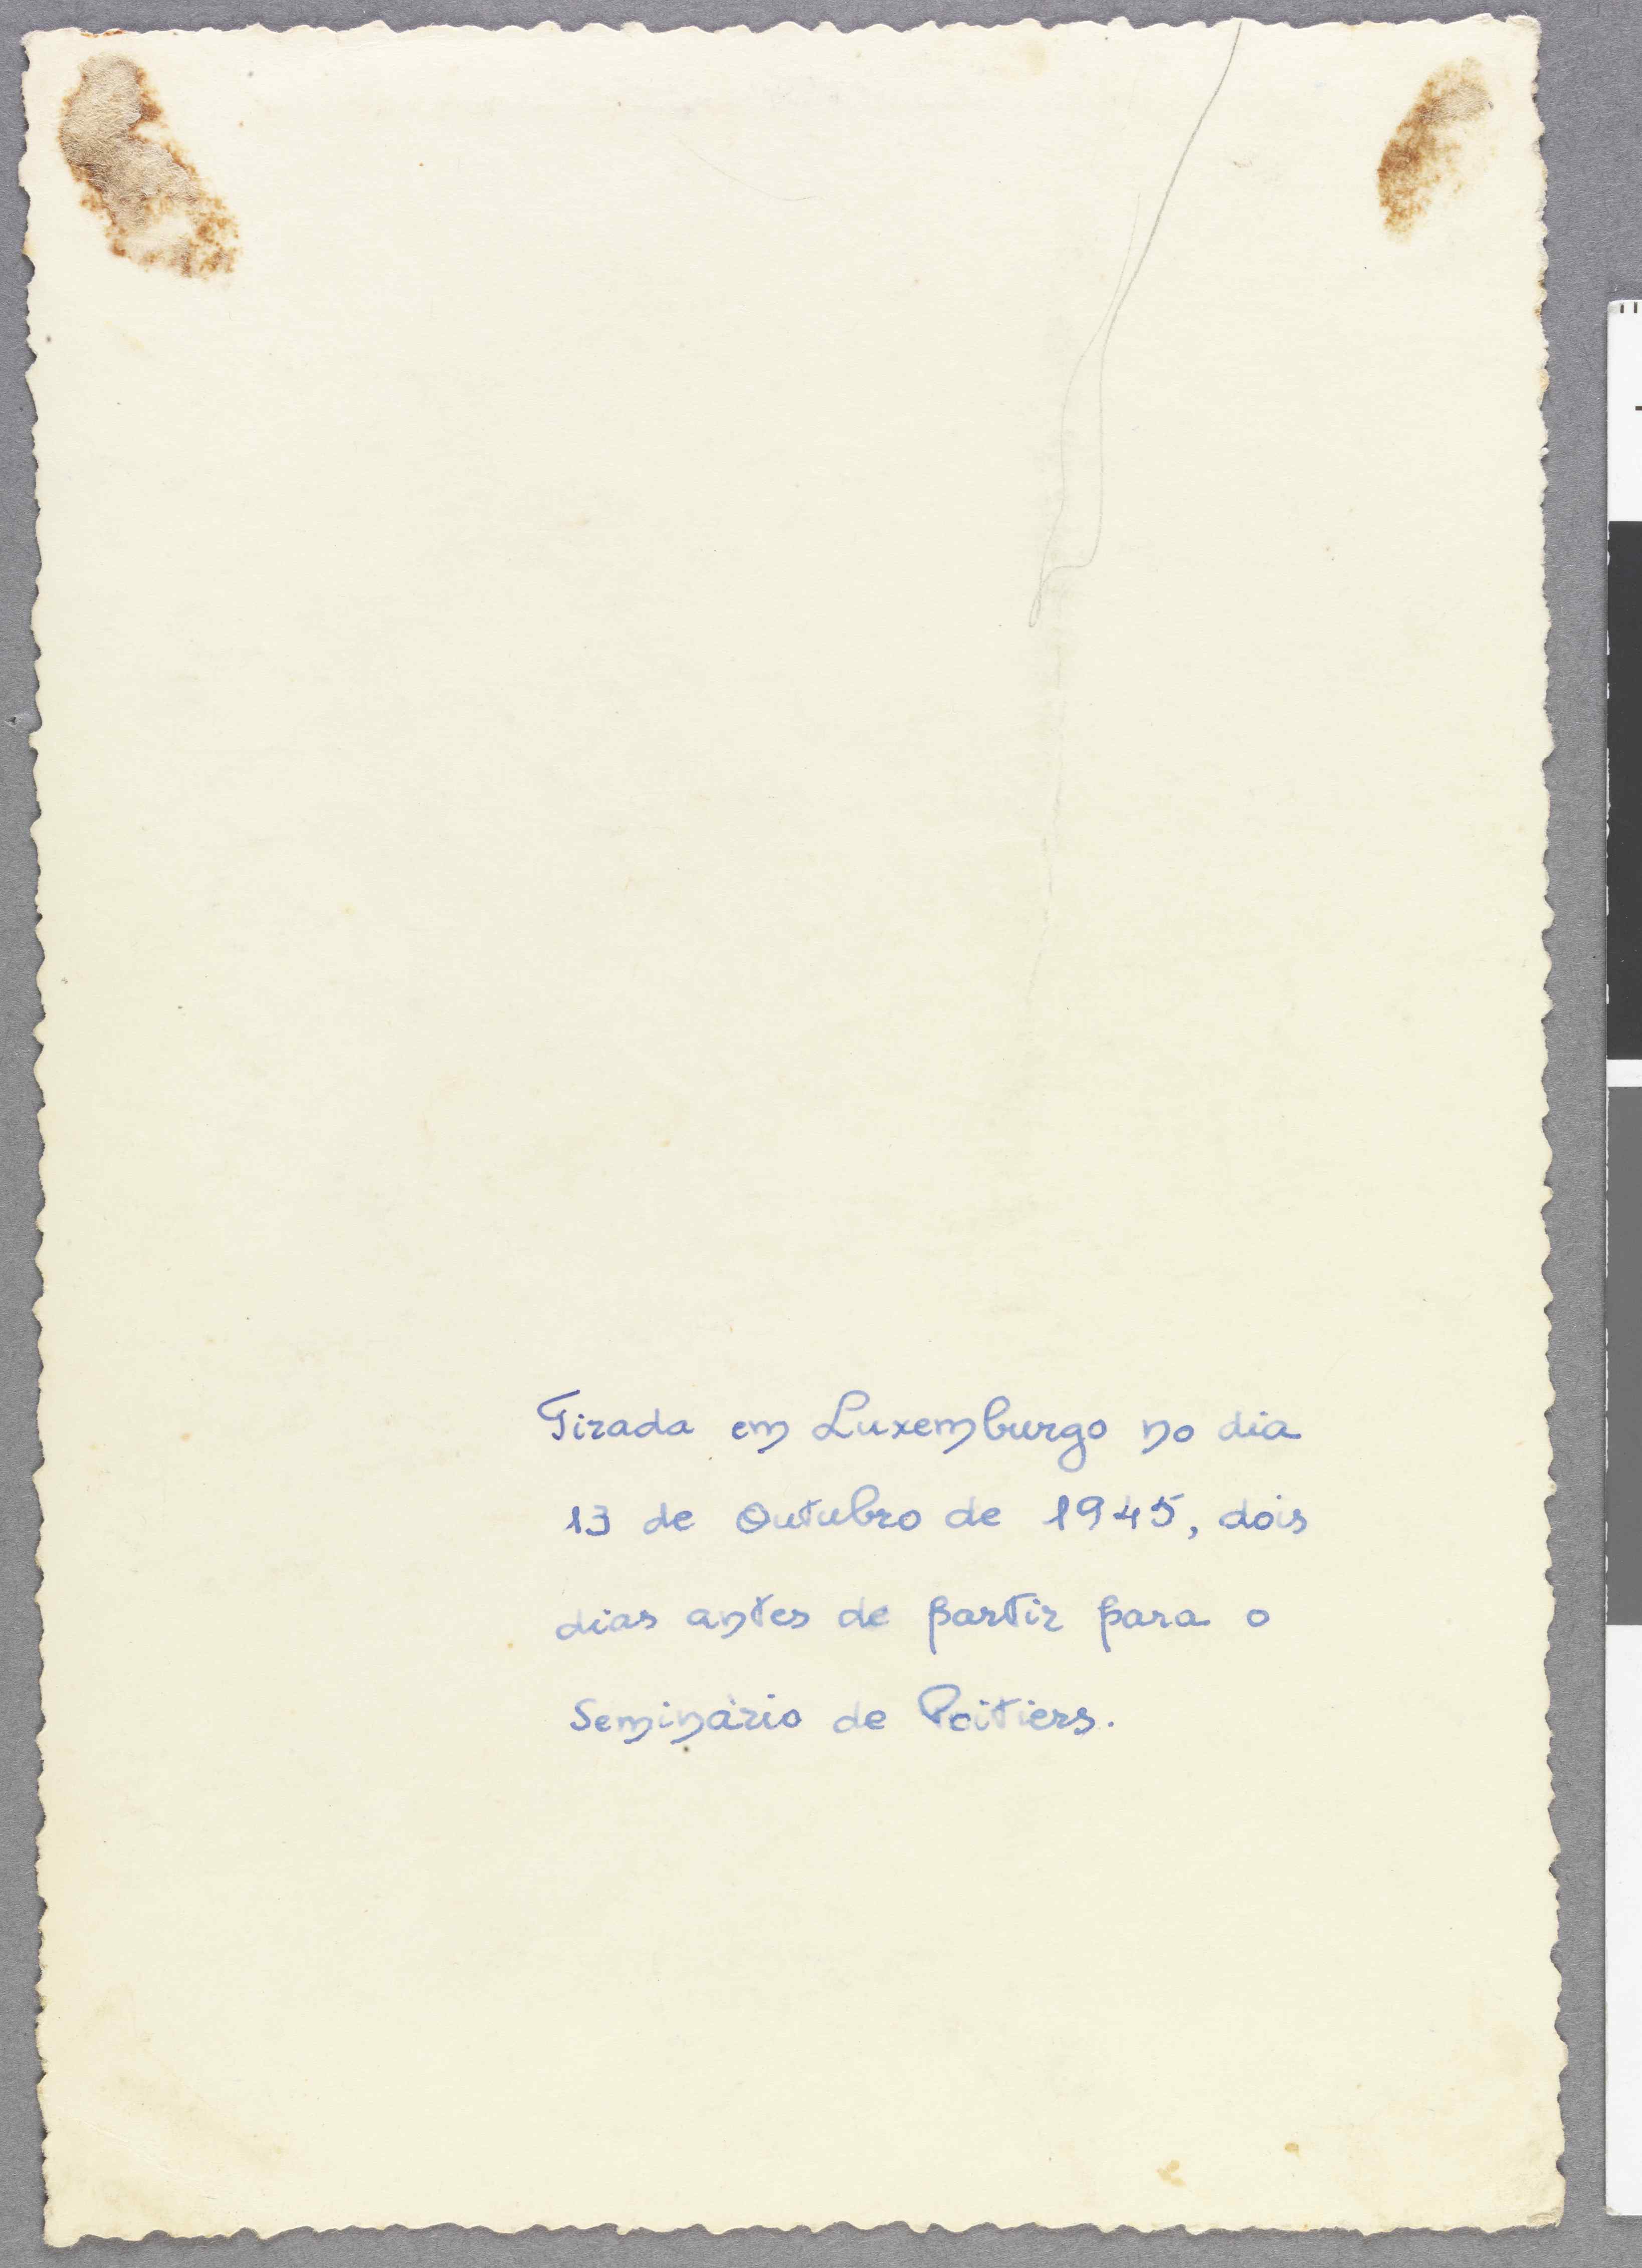 Tirada em Luxemburgo no dia
13 de Outubro de 1945, dois
dias antes de partir para o
Seminário de Poitiers.